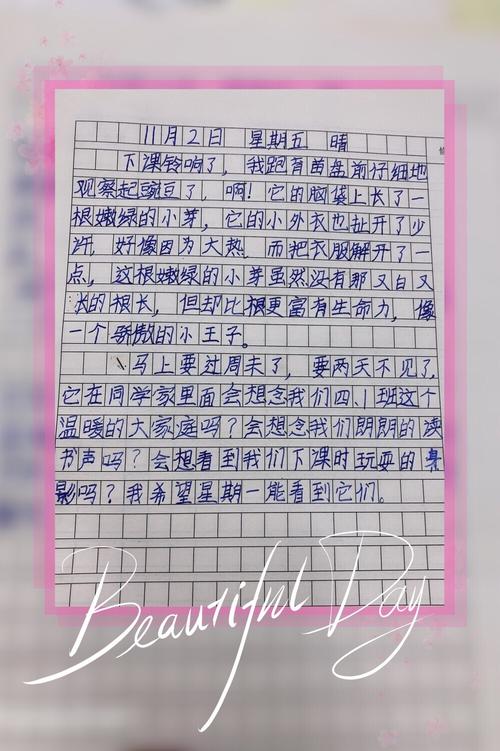 11月2日 星期五 晴
下课铃响了，我跑有苗盘前仔细地
观察起豌豆了，啊！它的脑袋上长了一
根嫩绿的小芽，它的小外衣也扯开了少
许，好像因为大热，而把衣服解开了一
点，这根嫩绿的小芽虽然没有那又白又
长的根长，但却比根更富有生命力，像
一个骄傲的小王子。
马上要过周末了，要两天不见了，
它在同学家里面会想念我们四、1班这个
温暖的大家庭吗？会想念我们朗朗的读
书声吗？会想看到我们下课时玩耍的身
影吗？我希望星期一能看到它们。
Beautiful Day